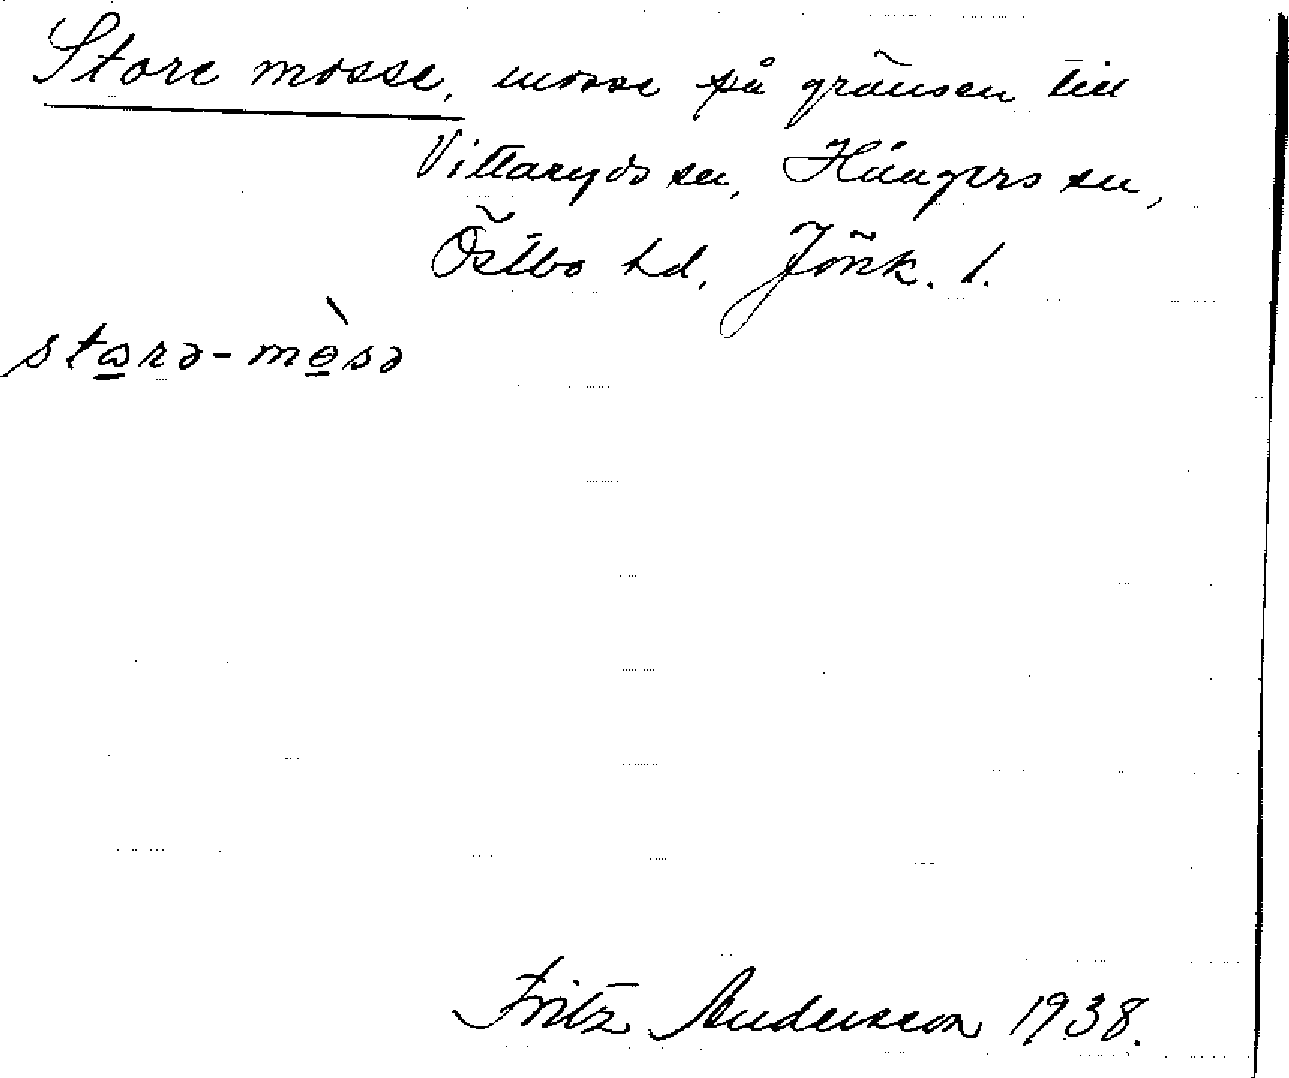 Store mosse, mosse på gränsen till
Vittaryds sn, Hångers sn,
Östbo hd, Jönk. l.
starə-mòsə
Fritz Andersson 1938.